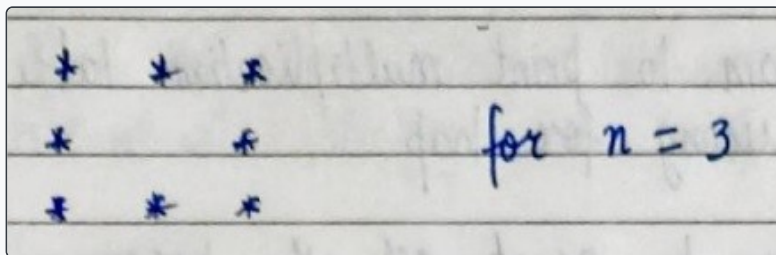 * * *
*   * for n = 3
* * *